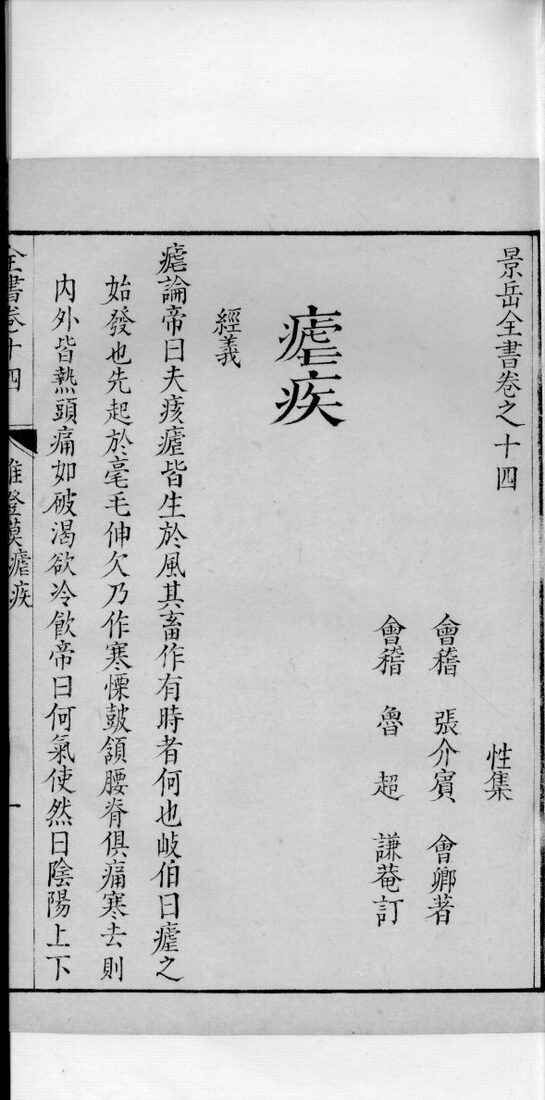 景岳全書卷之十四
性集
會稽 張介賓 會卿著
會稽 魯超 謙菴訂
瘧疾
經義
瘧論帝曰夫痎瘧皆生於風其畜作有時者何也岐伯曰瘧之
始發也先起於毫毛伸欠乃作寒慄鼓頷腰脊俱痛寒去則
內外皆熱頭痛如破渴欲冷飲帝曰何氣使然曰陰陽上下
全書卷十四 雜證謨瘧疾 一